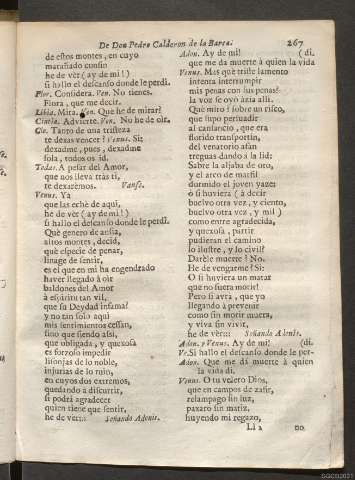 De Don Pedro Calderon de la Barca. 267
de estos montes, en cuyo
marañado confin
he de vèr (ay de mi!)
si hallo el descanso donde le perdì.
Flor. Considera. Ven. No tienes.
Flora, que me decir.
Libia. Mira. Ven. Què he de mirar?
Cintia. Advierte. Ven. No he de oir.
Clo. Tanto de una tristeza
te dexas vencer? Venus. Si:
dexadme, pues, dexadme
sola, todos id.
Todas. A pesar del Amor,
que nos lleva tràs ti,
te dexarèmos. Vanse.
Venus. Ya
que las echè de aqui,
he de vèr (ay de mi!)
si hallo el descanso donde le perdì.
Què genero de ansia,
altos montes, decid,
què especie de penar,
linage de sentir,
es el que en mi ha engendrado
haver llegado à oir
baldones del Amor
à espiritu tan vil,
que su Deydad infama?
y no tan solo aqui
mis sentimientos cessan,
sino que siendo assi,
que obligada, y quexosa
es forzoso impedir
lisonjas de lo noble,
injurias de lo ruin,
en cuyos dos extremos,
quedando à discurrir,
si podrà agradecer
quien tiene que sentir,
he de vèr:: Soñando Adonis.
Adon. Ay de mi! (di.
que me da muerte à quien la vida
Venus. Mas què triste lamento
intenta interrumpir
mis penas con sus penas?
la voz se oyò àzia alli.
Què miro! sobre un risco,
que supo persuadir
al cansancio, que era
florido transportin,
del venatorio afan
treguas dando à la lid:
Sobre la aljaba de oro,
y el arco de marfil
dormido el joven yaze:
ò si huviera (à decir
buelvo otra vez, y ciento,
buelvo otra vez, y mil)
como entre agradecida,
y quexosa, partir
pudieran el camino
lo ilustre, y lo civil?
Darèle muerte? No.
He de vengarme? Si:
O si huviera un matar
que no fuera morir!
Pero si avrà, que yo
llegando à prevenir
como sin morir muera,
y viva sin vivir,
he de vèr::: Soñando Adonis.
Adon. y Venus. Ay de mi! (di.
Ve. Si hallo el descanso donde le per-
Adon. Que me dà muerte à quien
la vida di.
Venus. O tu velero Dios,
que en campos de zafir,
relampago sin luz,
paxaro sin matiz,
huyendo mi regazo,
Ll 2 no